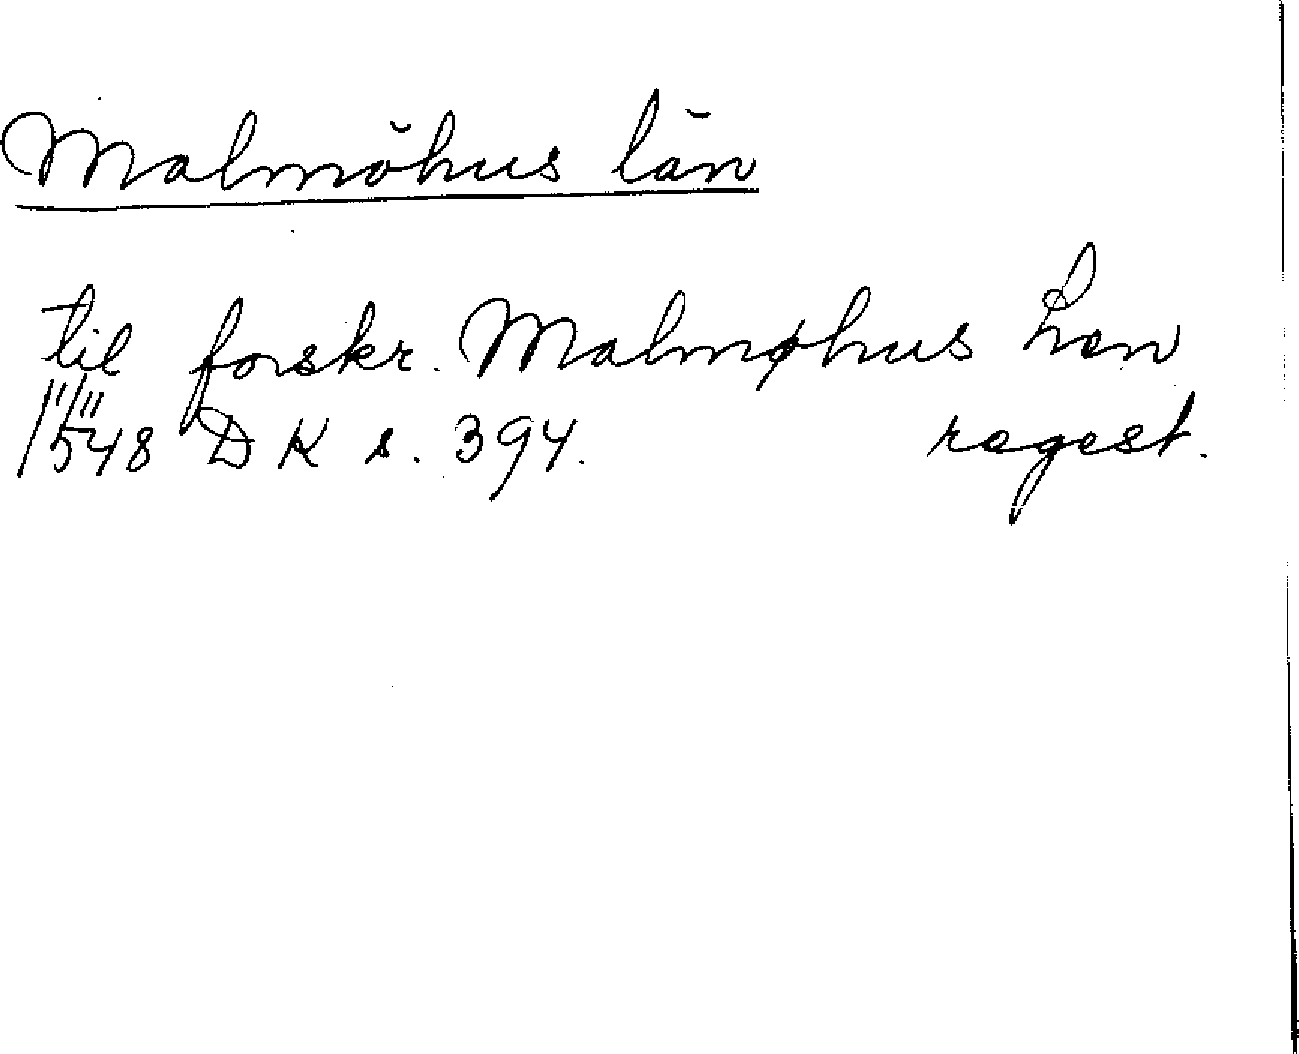 Malmöhus län
til forskr. Malmøhus Len
11/11
1548 DK s. 394. regest.